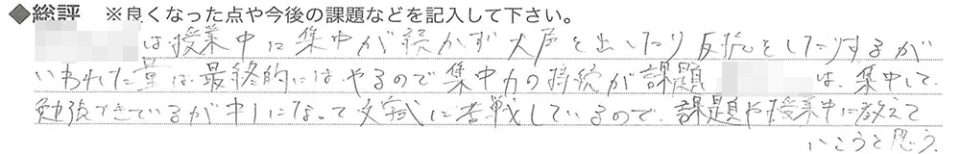 ◆総評 ※良くなった点や今後の課題などを記入して下さい。
は授業中に集中が続かず大声を出したり反抗をしたりするが
いわれた量は最終的にはやるので集中力の持続が課題 は、集中して
勉強できているが中1になって文字式に苦戦しているので、課題や授業中に教えて
いこうと思う。